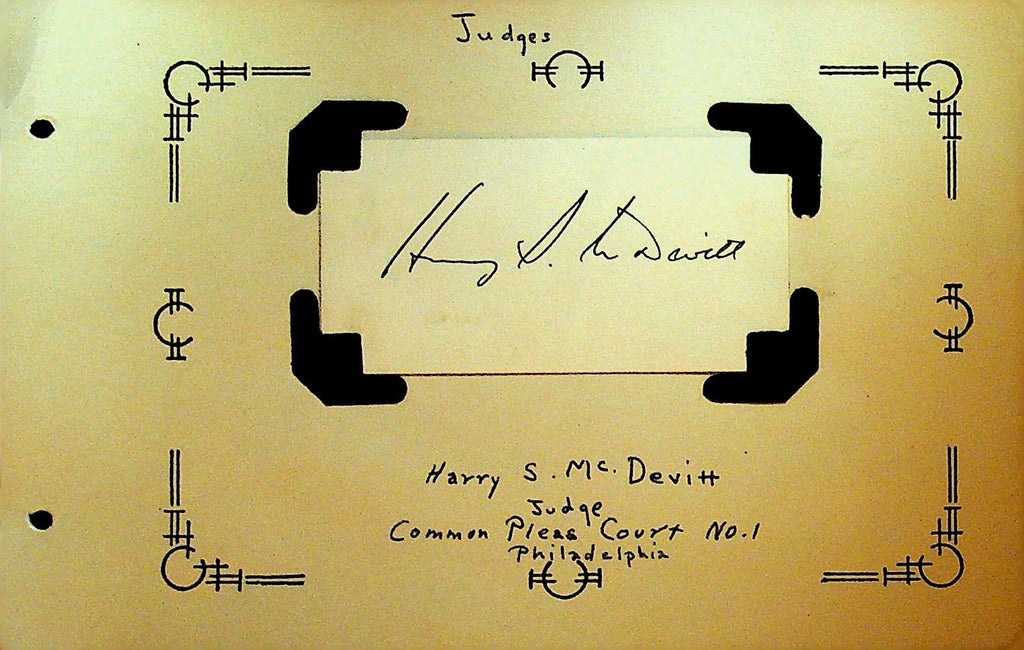 Judges
Harry S. McDevitt
Harry S. Mc. Devitt
Judge
Common Pleas Court No. 1
Philadelphia